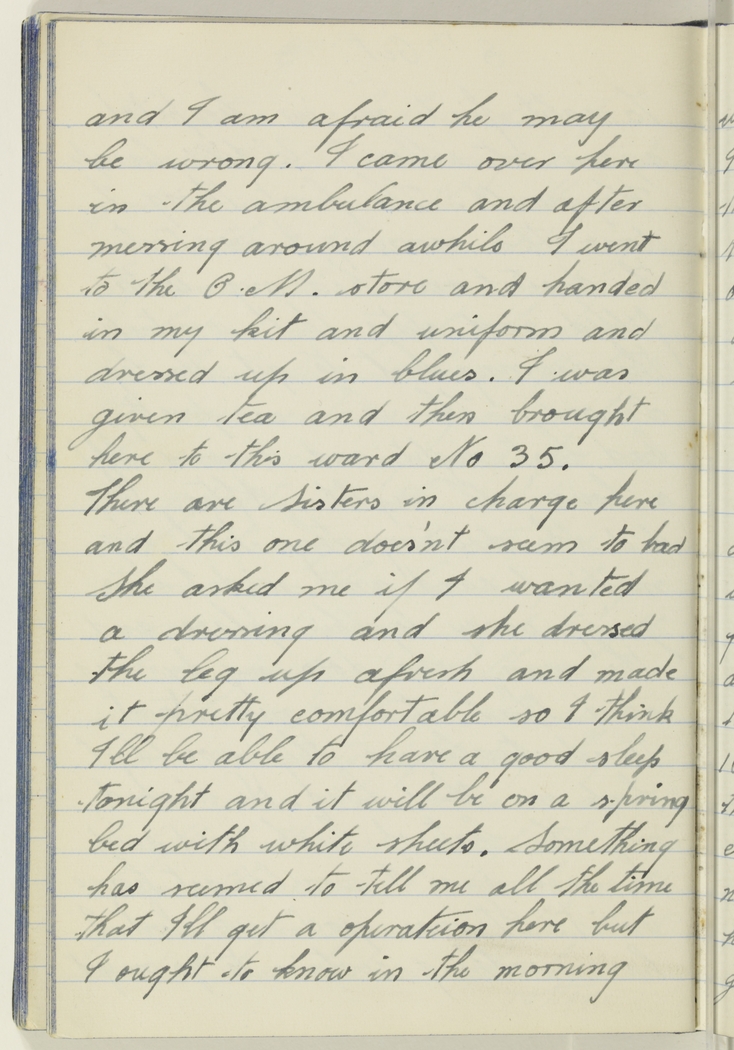 and I am afraid he may
be wrong. I came over here
in the ambulance and after
messing around awhile I went
to the Q.M. store and handed
in my kit and uniform and
dressed up in blues. I was
given tea and then brought
here to this ward No 35.
There are Sisters in charge here
and this one does'nt seem to bad
She asked me if I wanted
a dressing and she dressed
the leg up afresh and made
it pretty comfortable so I think
I'll be able to have a good sleep
tonight and it will be on a spring
bed with white sheets. Something
has seemed to tell me all the time
that I'll get a operateion here but
I ought to know in the morning